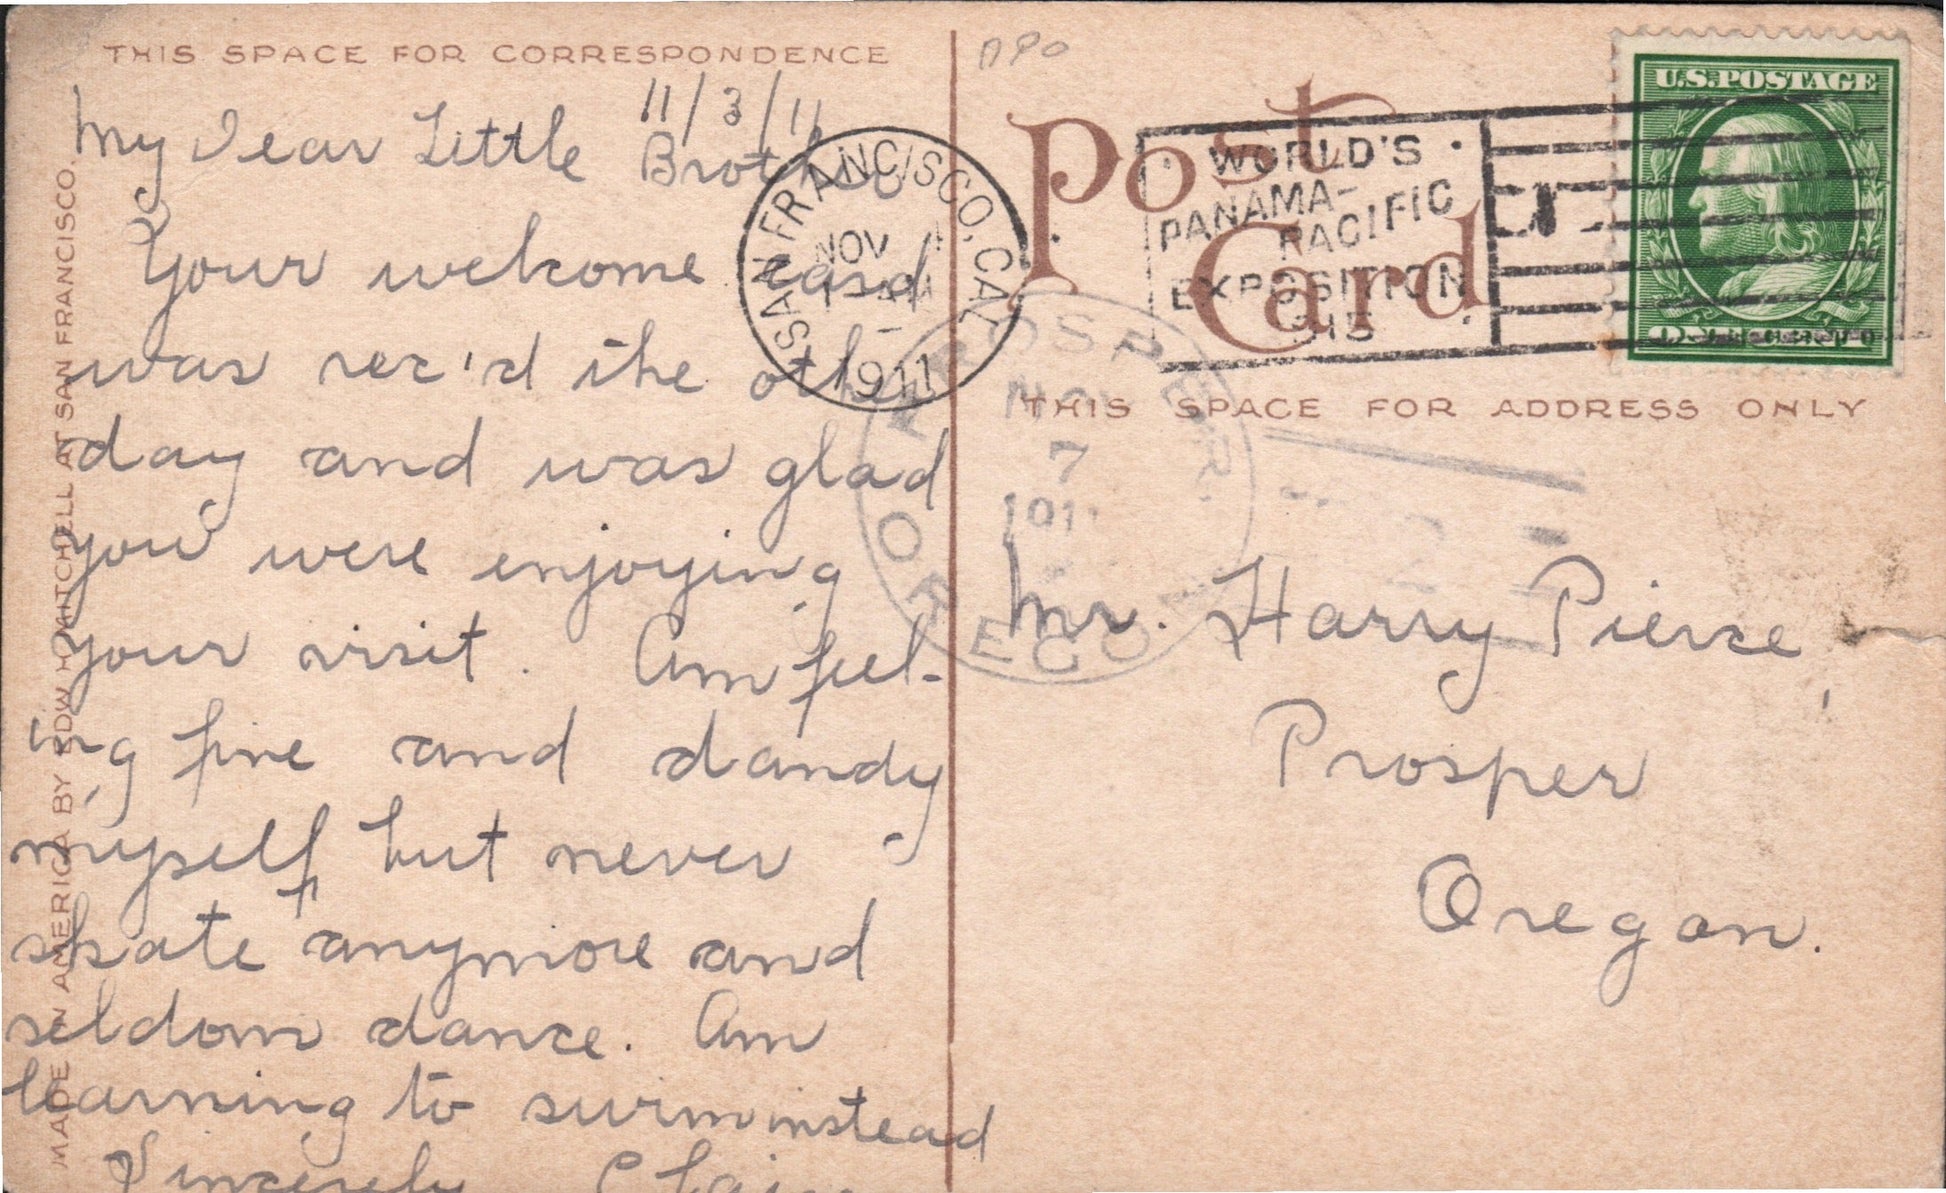 THIS SPACE FOR CORRESPONDENCE
11/3/11
My Dear Little Brother
Your welcome card
was rec'd the other
day and was glad
you were enjoying
your visit. Am feel-
ing fine and dandy
myself but never
skate anymore and
seldom dance. Am
learning to swim instead
Sincerely
MADE IN AMERICA BY EDW H MITCHELL AT SAN FRANCISCO.
APO
Post
Card
SAN FRANCISCO, CAL
NOV
1911
WORLD'S
PANAMA-
PACIFIC
EXPOSITION
1915
U.S. POSTAGE
PROSPER
NOV
7
OREGON
THIS SPACE FOR ADDRESS ONLY
Mr. Harry Pierce,
Prosper
Oregon.